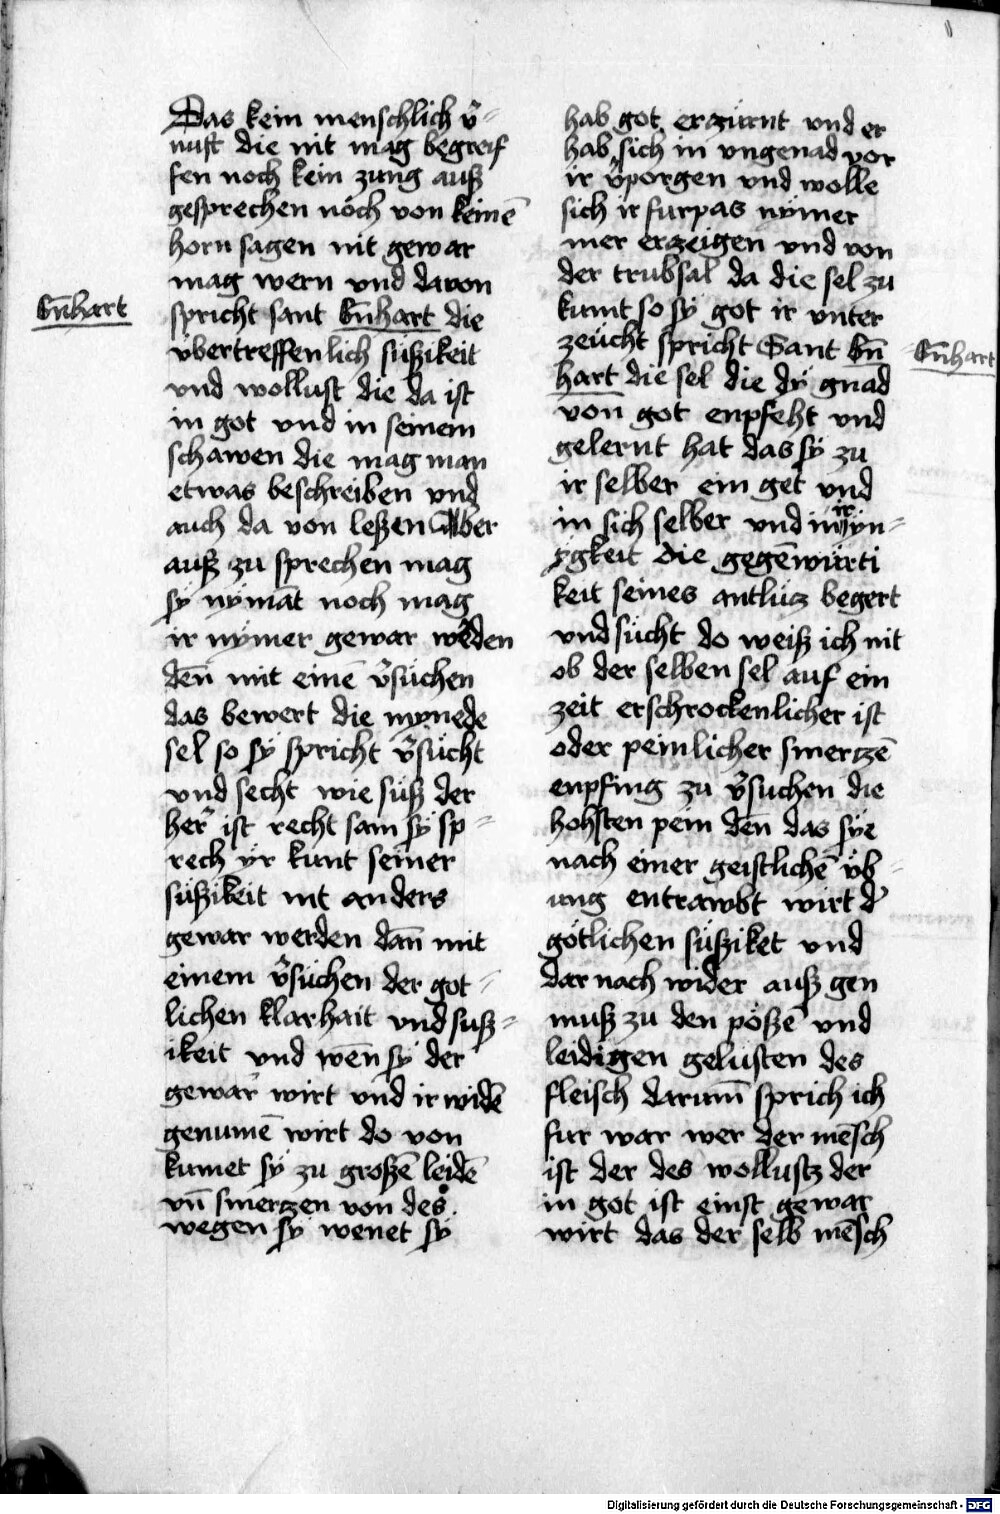 Das kein menschlich v̄-
nuft die nit mag begreif
fen noch kein zung auß
gesprechen noch von keinē
horn sagen nit gewar
mag wern vnd davon
Bn̄hart
spricht sant Bn̄hart die
vbertreffenlich süßikeit
vnd wollust die da ist
in got vnd in seinem
schawen die mag man
etwas beschreiben vnd
auch da von leßen Aber
auß zu sprechen mag
sÿ nÿmāt noch mag
ir nÿmer gewar wēden
den̄ mit einē v̄süchen
das bewert die mynede
sel so sÿ spricht v̄sücht
vnd secht wie süß der
her̄ ist recht sam sÿ sp-
rech ÿr kunt seiner
süßikeit nit anders
gewar werden dan̄ mit
einem v̄süchen der got-
lichen klarhait vnd suß-
ikeit vnd wen̄ sÿ der
gewar wirt vnd ir widē
genumē wirt do von
kumet sÿ zu großē leidē
vn̄ smerzen von des
wegen sÿ wenet sÿ
hab got erzürnt vnd er
hab sich in vngenad vor
ir v̄porgen vnd wolle
sich ir furpas nÿmer
mer erzeigen vnd von
der trubsal da die sel zu
kumt so sÿ got ir vnter
zeücht spricht Sant Bn̄
Bn̄hart
hart die sel die dÿ gnad
von got enpfeht vnd
gelernt hat das sÿ zu
ir selber ein get vnd
in sich selber vnd in ir ÿn-
ygkeit die gegēwürti
keit seines antlütz begert
vnd sücht do weiß ich nit
ob der selben sel auf ein
zeit erschrockenlicher ist
oder peinlicher smertzē
enpfing zu v̄suchen die
hohsten pein den̄ das sÿe
nach einer geistlichē üb-
ung entrawbt wirt d'
götlichen süßiket vnd
dar nach wider auß gen
muß zu den pößē vnd
leidigen gelüsten des
fleisch darum̄ sprich ich
fur war wer der mēsch
ist der des wollustz der
in got ist einst gewar
wirt das der selb mēsch
Digitalisierung gefördert durch die Deutsche Forschungsgemeinschaft - DFG